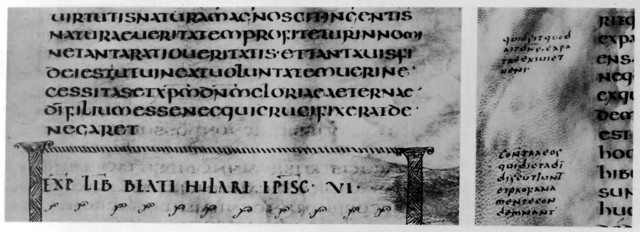 UIRTUTISNATURAMAGNOSCITINGENTIS
NATURAEUERITATEMPROFITETURINNOMI
NETANTARATIOUERITATIS·ETTANTAUISFI
DEIESTUTUINCATUOLUNTATEMUERINE
CESSITASETXPMDNMGLORIAEAETERNAE
DIFILIUMESSENECQUICRUCIFIXERATDE
NEGARET
EXP LIB BEATI HILARI EPISC· VI·
quidsitquod
aitone·expa
treexiuiet
ueni·
contraeos
quidictadi
discutiunt
etprofana
mentecon
demnant
EXPA
NECQ
DEM
EST
HOC
HIBU
HUC